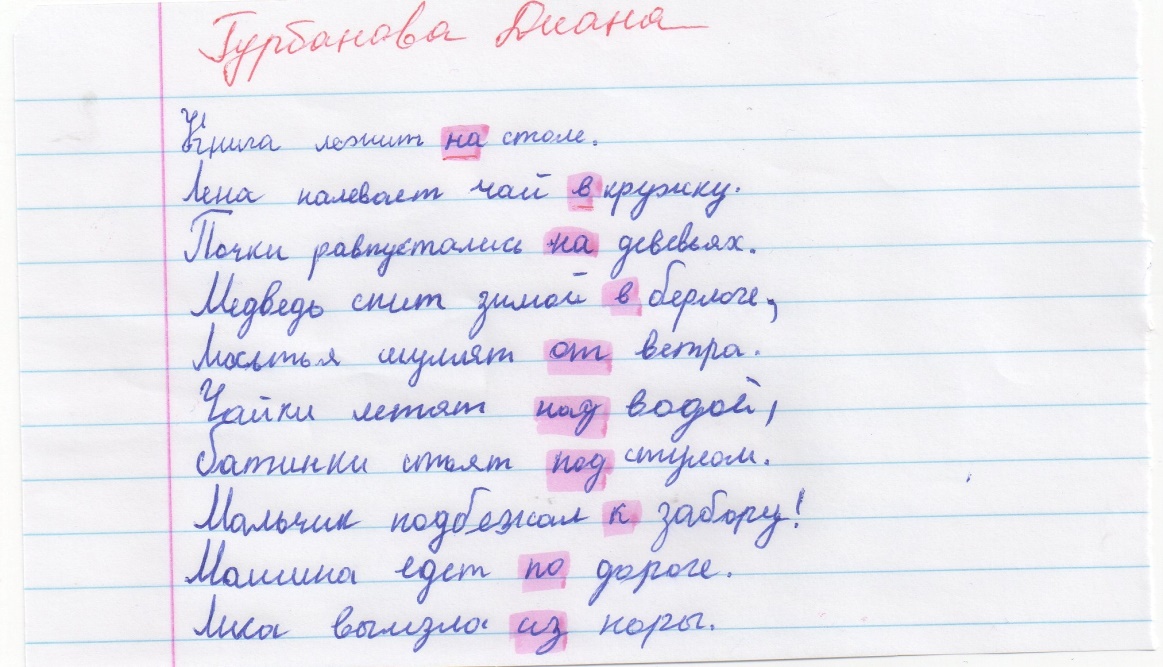 Гурбанова Диана
Книга лежит на столе.
Лена налевает чай в кружку.
Почки равпустались на девевьях.
Медведь спит зимой в берлоге,
шумят от ветра.
Чайки летят над водой,
Батинки стоят под стулом.
Мальчик подбежал к забору!
Машина едет по дороге.
Лиса вылезла из норы.